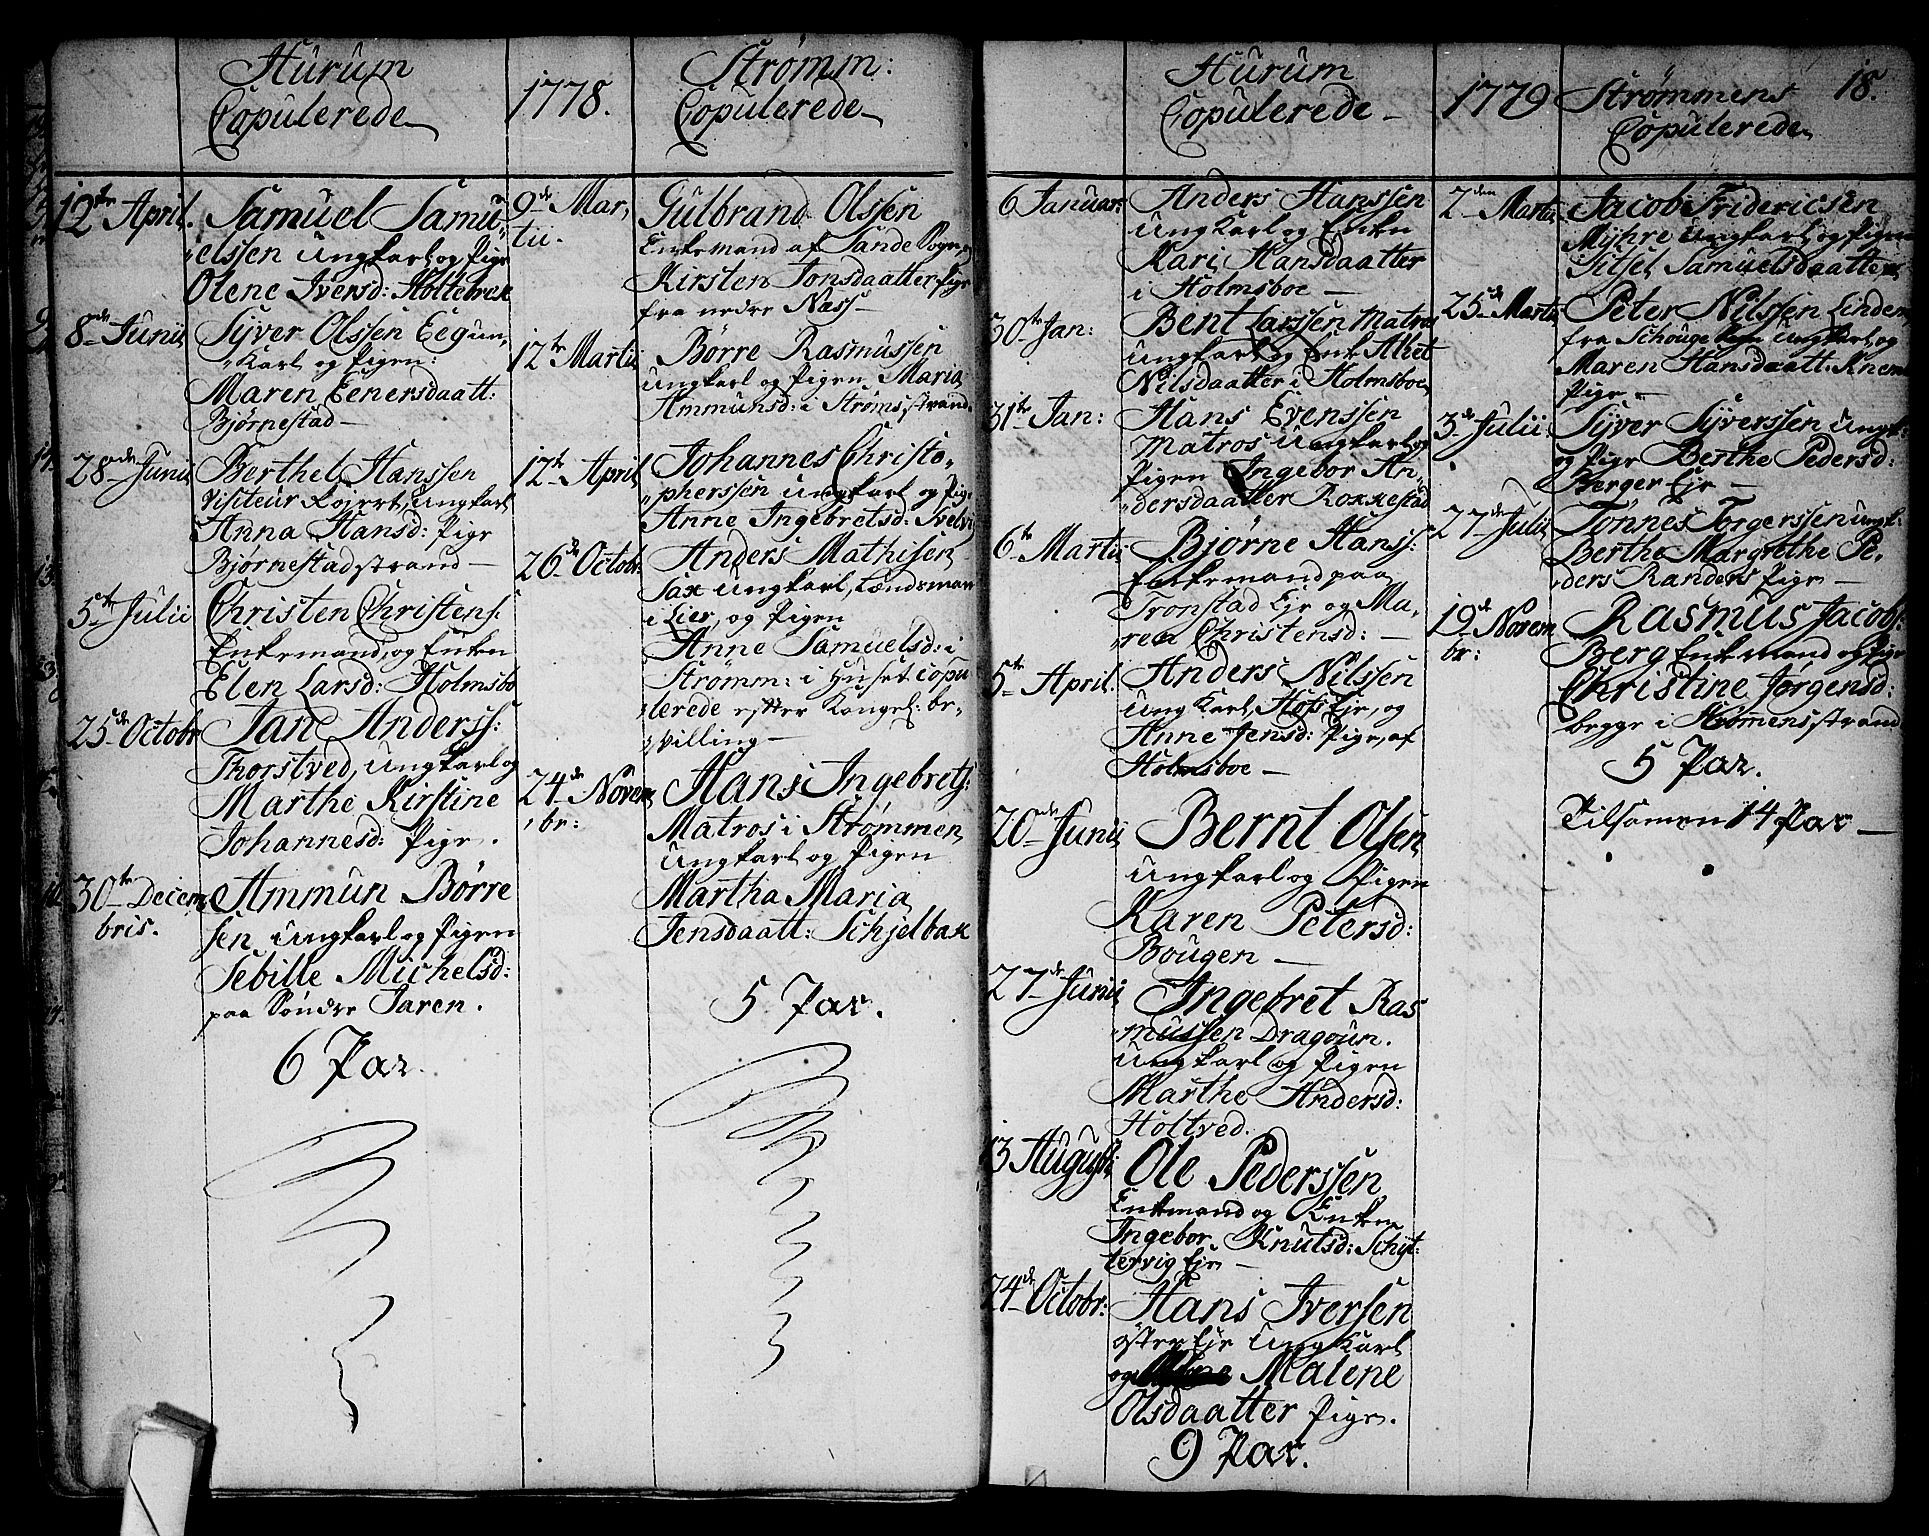 Hurum
Copulerede
1778.
12te April.
Samuel Samu„
„elssen Ungkarl og Pige
Olene Iversd: Holtebrek
8de Junii
Syver Olssen Eegun„
„Karl og Pigen:
Maren Eenersdaatt:
Bjørnestad
28de Junii
Berthel Hanssen
Visiteur Ungkarl
Anna Hansd: Pige
Bjørnestadstrand
5te Julii
Christen Christens:
Enkemand, og Enken
Elen Larsd: Holmsbo
25de Octobr
Jan Anderss:
Thorstved, Ungkarl og
Marthe Kirstine
Johannesd: Pige.
30te Decem
bris.
Ammun Børre
sen Ungkarl og Pigen
Sebille Michelsd:
paa Søndre Jaren.
6 Par.
Strømm:
Copulerede
9de Mar„
tii.
Gulbrand Olssen
Enkemand af Sande Sogn, og
Kirsten Jonsdaatter Pige
fra nedre Næss
12te Martii
Børre Rasmussen
Ungkarl og Pigen Maria
Ammunsd: i Strømsstrand.
12te April
Johannes Christo„
„pherssen Ungkarl og Pige
Anne Ingebretsd: Svelvi
26de Octobr:
Anders Mathisen
Sax Ungkarl, Lændsmand
i Lier, og Pigen
Anne Samuelsd: i
Strømm: i Huset copu
„lerede efter Kongel: be„
„villing
24de Novem
„br:
Hans Ingebrets:
Matros i Strømmen
Ungkarl og Pigen
Martha Maria
Jensdaatt: Schjelbæk
5 Par.
Hurum
Copulerede
1779
6 Januar:
Anders Hanssen
Ungkarl og Enken
Kari Hansdaatter
i Holmsboe
30te Jan:
Bent Larssen Matros
Ungkarl og Enke Alhet
Nilsdaatter i Holmsboe
31te Jan:
Hans Evenssen
Matros Ungkarl og
Pigen Ingebor An„
„dersdaatter Rokkestad
6te Martii
Bjørne Hanss:
Enkemand paa
Tronstad Eje og Ma„
ren Christensd:
5te April.
Anders Nilssen
Ung Karl, Hofs Eje, og
Anne Jensd: Pige, af
Holmsboe
20de Junii
Bernt Olsen
Ungkarl og Pigen
Karen Petersd:
Bougen
27de Junii
Ingebret Ras
„mussen Dragoun.
Ungkarl og Pigen
Marthe Andersd:
Holtved.
13 August:
Ole Pederssen
Enkemand og Enken
Ingebor Knutsd: Schjt:
tervig Eje
24de Octobr:
Hans Iversen
øster Eje Ung Karl
og Malene
Olsdaatter Pige.
9 Par.
Strømmens
Copulerede
18.
2den Martii
Jacob Fridericsen
Myhre Ungkarl og Pigen
Sitsel Samuelsdaatter
25de Martii
Peter Nilssen Linden
fra Schouge Ungkarl og
Maren Hansdaatt: Knem
Pige
3de Julii
Syver Syverssen Ungk:
og Pige Berthe Pedersd:
Berger Eje
27de Julii
Tønnes Torgerssen Ungk:
Berthe Margrethe Pe„
„ders Randers Pige
19de Novem
br:
Rasmus Jacobs:
Berg Enkemand og Pige
Christine Jørgensd:
begge i Strømensstrand
5 Par.
Tilsamen 14 Par